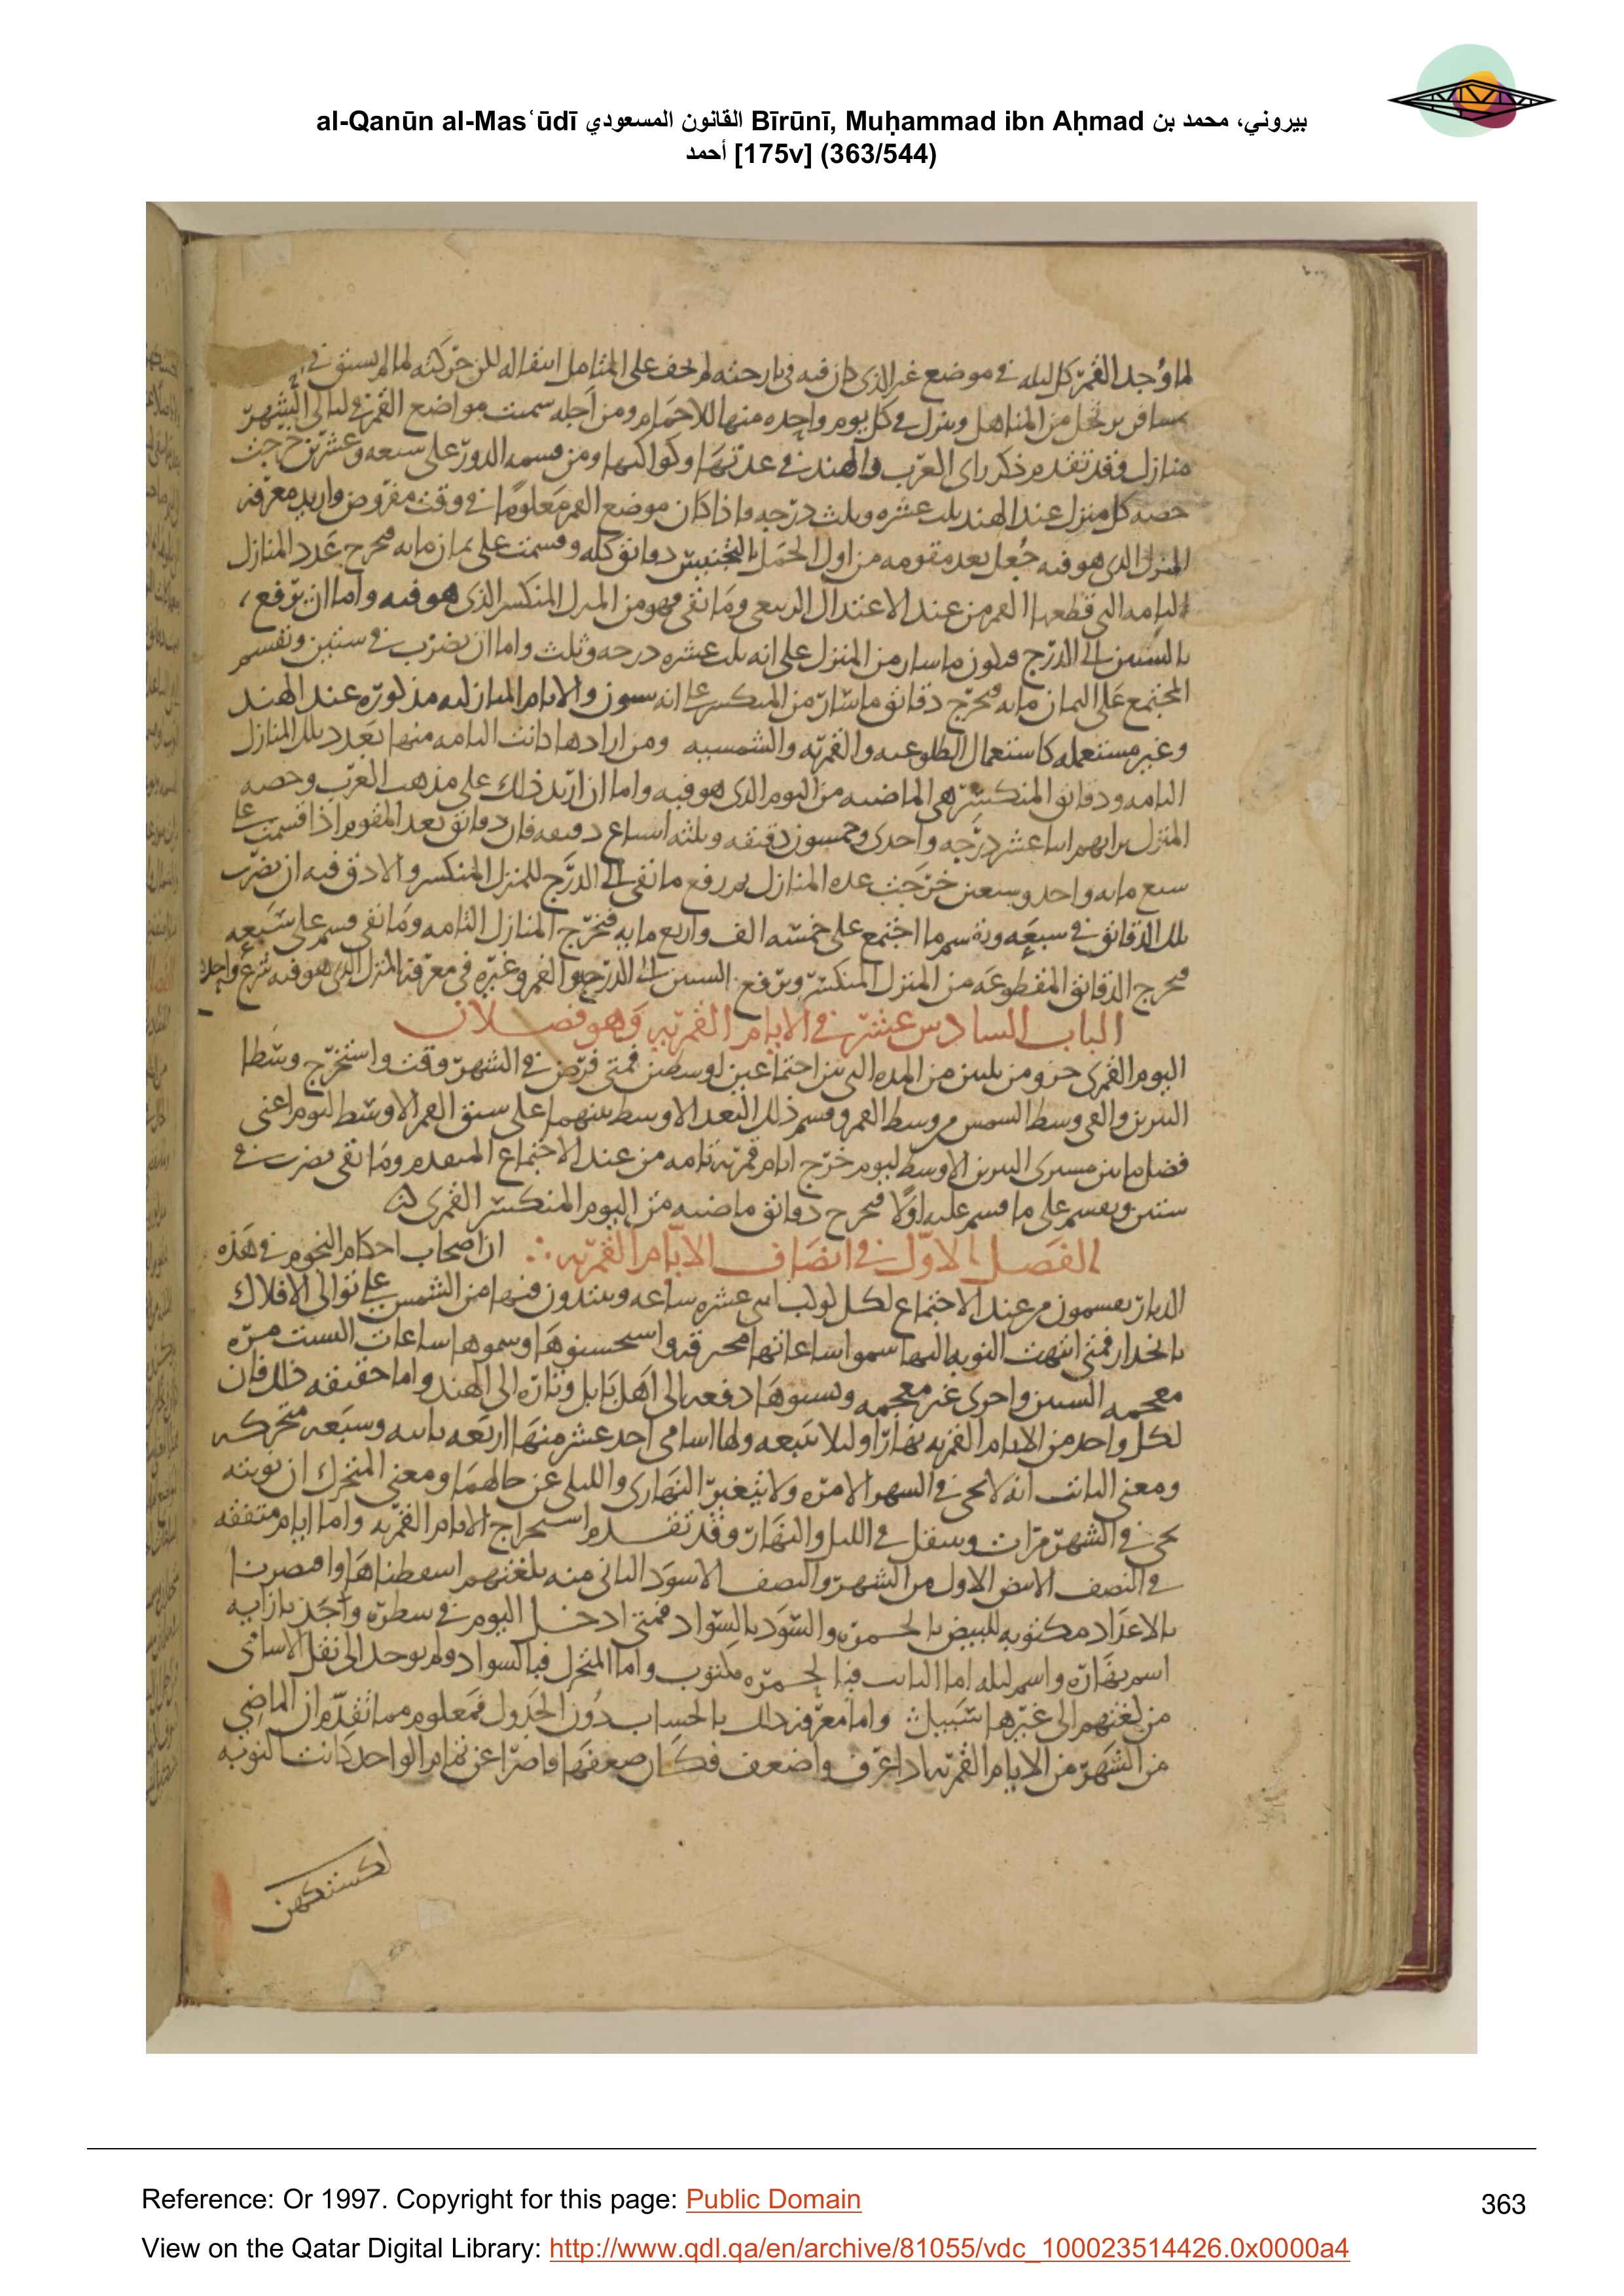 al-Qanūn al-Masʿūdī القانون المسعودي Bīrūnī, Muḥammad ibn Aḥmad بيروني، محمد بن
أحمد [175v] (363/544)
لما وجد القمر كل ليله في موضع غير الذي كان فيه في بارحته لم يخف على المتامل انتقاله
مسافر يرتحل من المناهل وينزل في كل يوم واحده منها للاجمام ومن اجله سميت مواضع القمر في ليالي الشهر
منازل وقد تقدم ذكر راي العرب والهند في عدتها وكواكبها ومن قسمه الدور على سبعه وعشرين خرجت
حصه كل منزل عند الهند ثلث عشره وثلث درجه واذا كان موضع القمر معلوما في وقت مفروض واريد معرفه
المنزل الذي هو فيه جعل بعد مقومه من اول الحمل بالتجنيس دقائق كله وقسمت على ثمان مايه فيخرج عدد المنازل
التامه التي قطعها القمر من عند الاعتدال الربيعي وما بقى فهو من المنزل المنكسر الذي هو فيه واما ان ترفع
بالستين الى الدرج فيكون ما سار من المنزل على انه ثلث عشره درجه وثلث واما ان يضرب في ستين ونقسم
المجتمع على الثمان مايه فيخرج دقائق ما سار من المنكسر على انه ستون والايام المنازليه مذكوره عند الهند
وغير مستعمله كاستعمال الطلوعيه والقمريه والشمسيه ومن ارادها كانت التامه منها بعدد تلك المنازل
التامه ودقائق المنكسر هي الماضيه من اليوم الذي هو فيه واما ان اريد ذلك على مذهب العرب وحصه
المنزل برايهم اثنا عشر درجه واحدى وخمسون دقيقه وثلثه اسباع دقيقه فان دقائق بعد المقوم اذا قسمت على
سبع مايه واحد وسبعين خرجت عده المنازل ثم رفع ما بقى الى الدرج للمنزل المنكسر والادق فيه ان يضرب
تلك الدقائق في سبعه ونقسم ما اجتمع على خمسه الف واربع مايه فتخرج المنازل التامه وما بقى قسم على سبعه
فيخرج الدقائق المقطوعه من المنزل المنكسر وترفع بالستين الى الدرج والقمر وغيره في معرفه المنزل الذي هو فيه شرع واحد
الباب السادس عشر في الايام القمريه وهو فصلان
اليوم القمري جزو من ثلثين من المده التي بين اجتماعين اوسطين فمتى فرض في الشهر وقت واستخرج وسطا
النيرين والقي وسط الشمس من وسط القمر وقسم ذلك البعد الاوسط بينهما على سبق القمر الاوسط لليوم اعني
فضل ما بين مسيري النيرين الاوسط ليوم خرج ايام قمريه تامه من عند الاجتماع المتقدم وما بقى يضرب في
ستين ويقسم على ما قسم عليه اولا فيخرج دقائق ماضيه من اليوم المنكسر القمري
الفصل الاول في انصاف الايام القمريه ان اصحاب احكام النجوم في هذه
الديار يقسمون من عند الاجتماع لكل كوكب اثني عشره ساعه ويبتدون فيها من الشمس على توالى الافلاك
بانحدار فمتى انتهت النوبه اليها سموا ساعاتها محترقه واستحسنوها وسموها ساعات البست مره
معجمه السين واخرى غير معجمه ونسبوها دفعه الى اهل بابل وتاره الى الهند واما حقيقه ذلك فان
لكل واحد من الايام القمريه نهارا وليلا يتبعه ولها اسامى احد عشر منها اربعه ثابته وسبعه متحركه
ومعنى الثابت انه لا يجي في الشهر الا مره ولا يتغير النهاري والليلي عن حالهما ومعنى المتحرك ان نوبته
تجي في الشهر مرات وينتقل في الليل والنهار وقد تقدم استخراج الايام القمريه واما ايام متفقه
في النصف الابيض الاول من الشهر والنصف الاسود الثاني منه بلغتهم اسقطناها واقتصرنا
بالاعداد مكتوبه للبيض بالحمره والسود بالسواد فمتى ادخل اليوم في سطره وجد بازايه
اسم نهاره واسم ليله اما الثابت فبالحمره مكتوب واما المتحرك فبالسواد ولم يوجد الى نقل الاسامى
من لغتهم الى غيرها سبيل واما معرفه ذلك بالحساب دون الجدول فمعلوم مما تقدم ان الماضي
من الشهر من الايام القمريه اذا عرف واضعف فكان ضعفها قاصرا عن تمام الواحد كانت النوبه
Reference: Or 1997. Copyright for this page: Public Domain
363
View on the Qatar Digital Library: http://www.qdl.qa/en/archive/81055/vdc_100023514426.0x0000a4